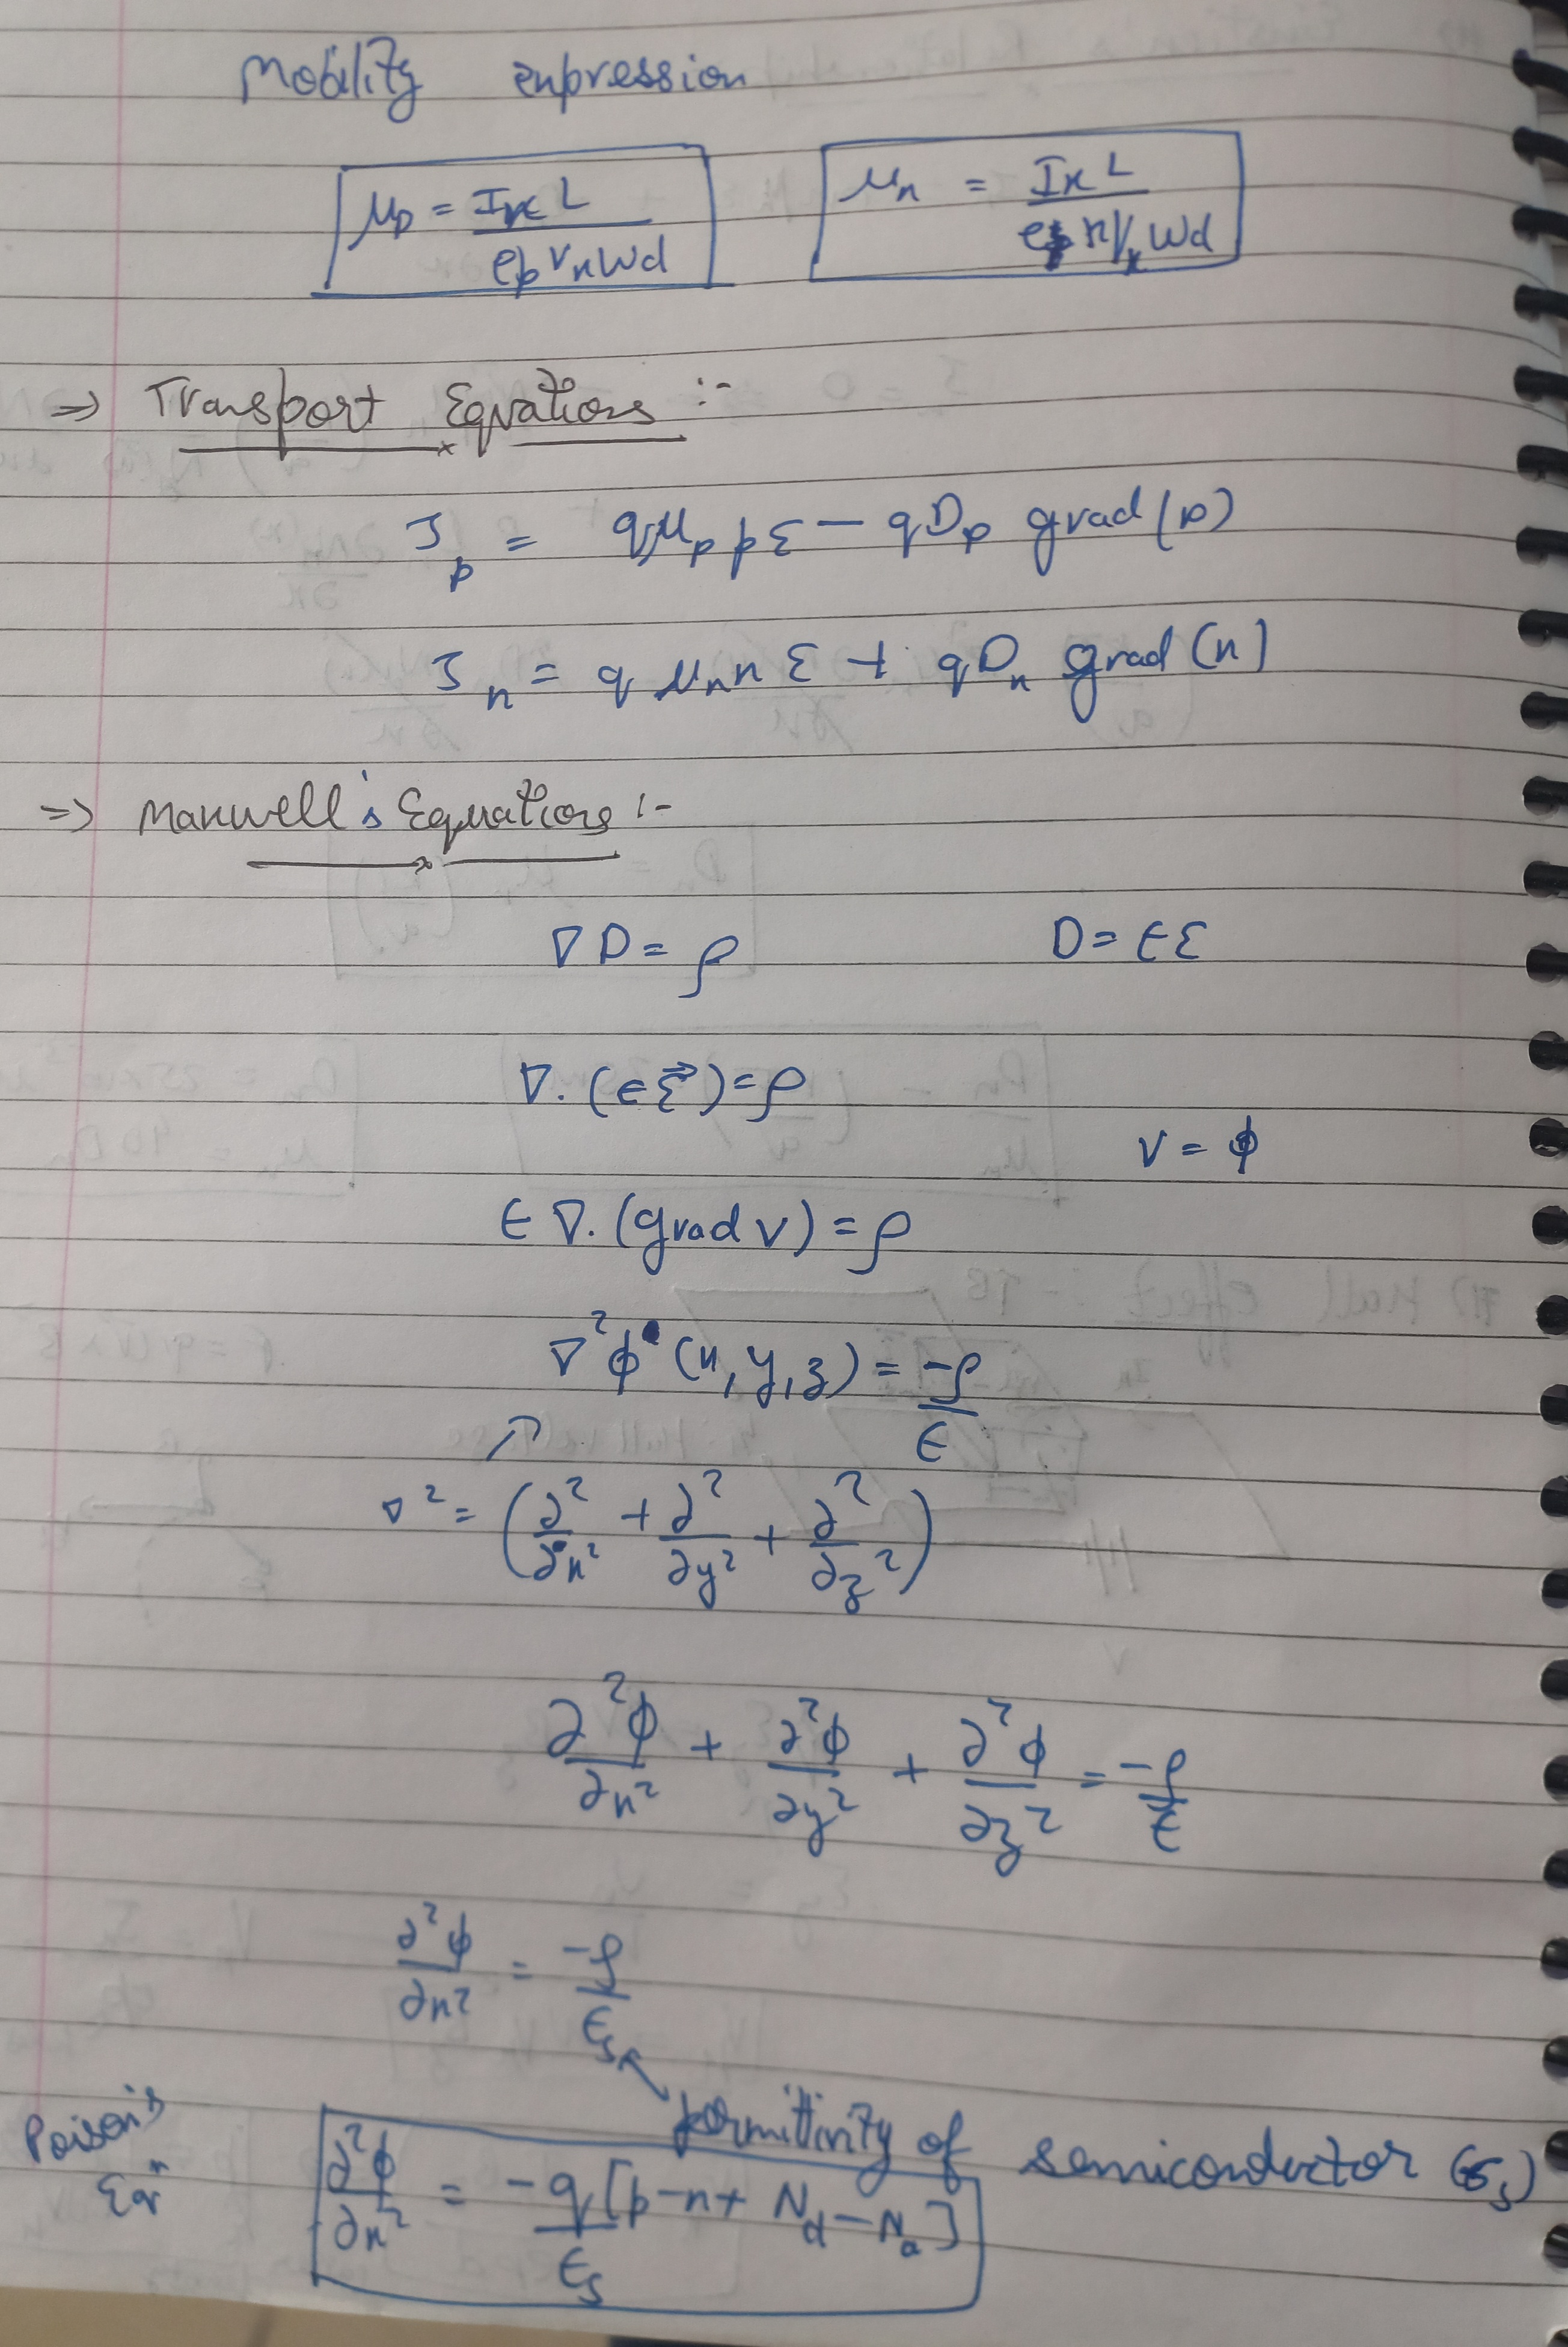 Mobility enpression
μp = Ix L / ep Vx Wd    μn = Ix L / e n Vx Wd
=> Transport Equations :-
Jp = qμp p Ɛ − qDp grad(p)
Jn = q μn n Ɛ + qDn grad (n)
=> Maxwell's Equations :-
∇ D = ρ    D = ϵƐ
∇. (ϵƐ⃗) = ρ
V = ϕ
ϵ ∇. (grad v) = ρ
∇²ϕ (x, y, z) = -ρ / ϵ
∇² = (∂²/∂x² + ∂²/∂y² + ∂²/∂z²)
∂²ϕ/∂x² + ∂²ϕ/∂y² + ∂²ϕ/∂z² = -ρ/ϵ
∂²ϕ/∂x² = -ρ/ϵs
permittivity of semiconductor (ϵs)
Poison's
Eqn    ∂²ϕ/∂x² = -q/ϵs [p-n+ Nd - Na]